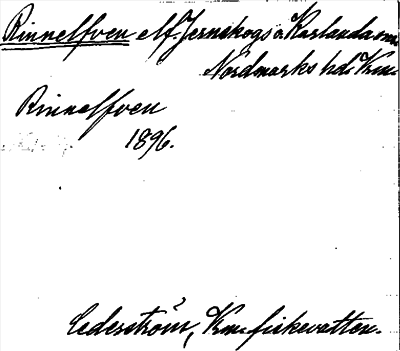 Rinnelfven elf. Jernskogs o. Karlanda snr
Nordmarks hd. Vrm.
Rinnelfven
1896.
Cederström, Vrm. fiskevatten.